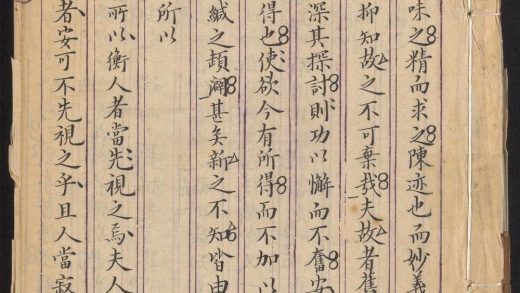 味之精而求之陳迹也而妙義
抑知故之不可棄哉夫故者舊
深其探討則功以懈而不奮安
得也使欲今有所得而不加以
緘之甚矣新之不知皆由
所以
所以衡人者當先視之焉夫人
者安可不先視之乎且人當寂